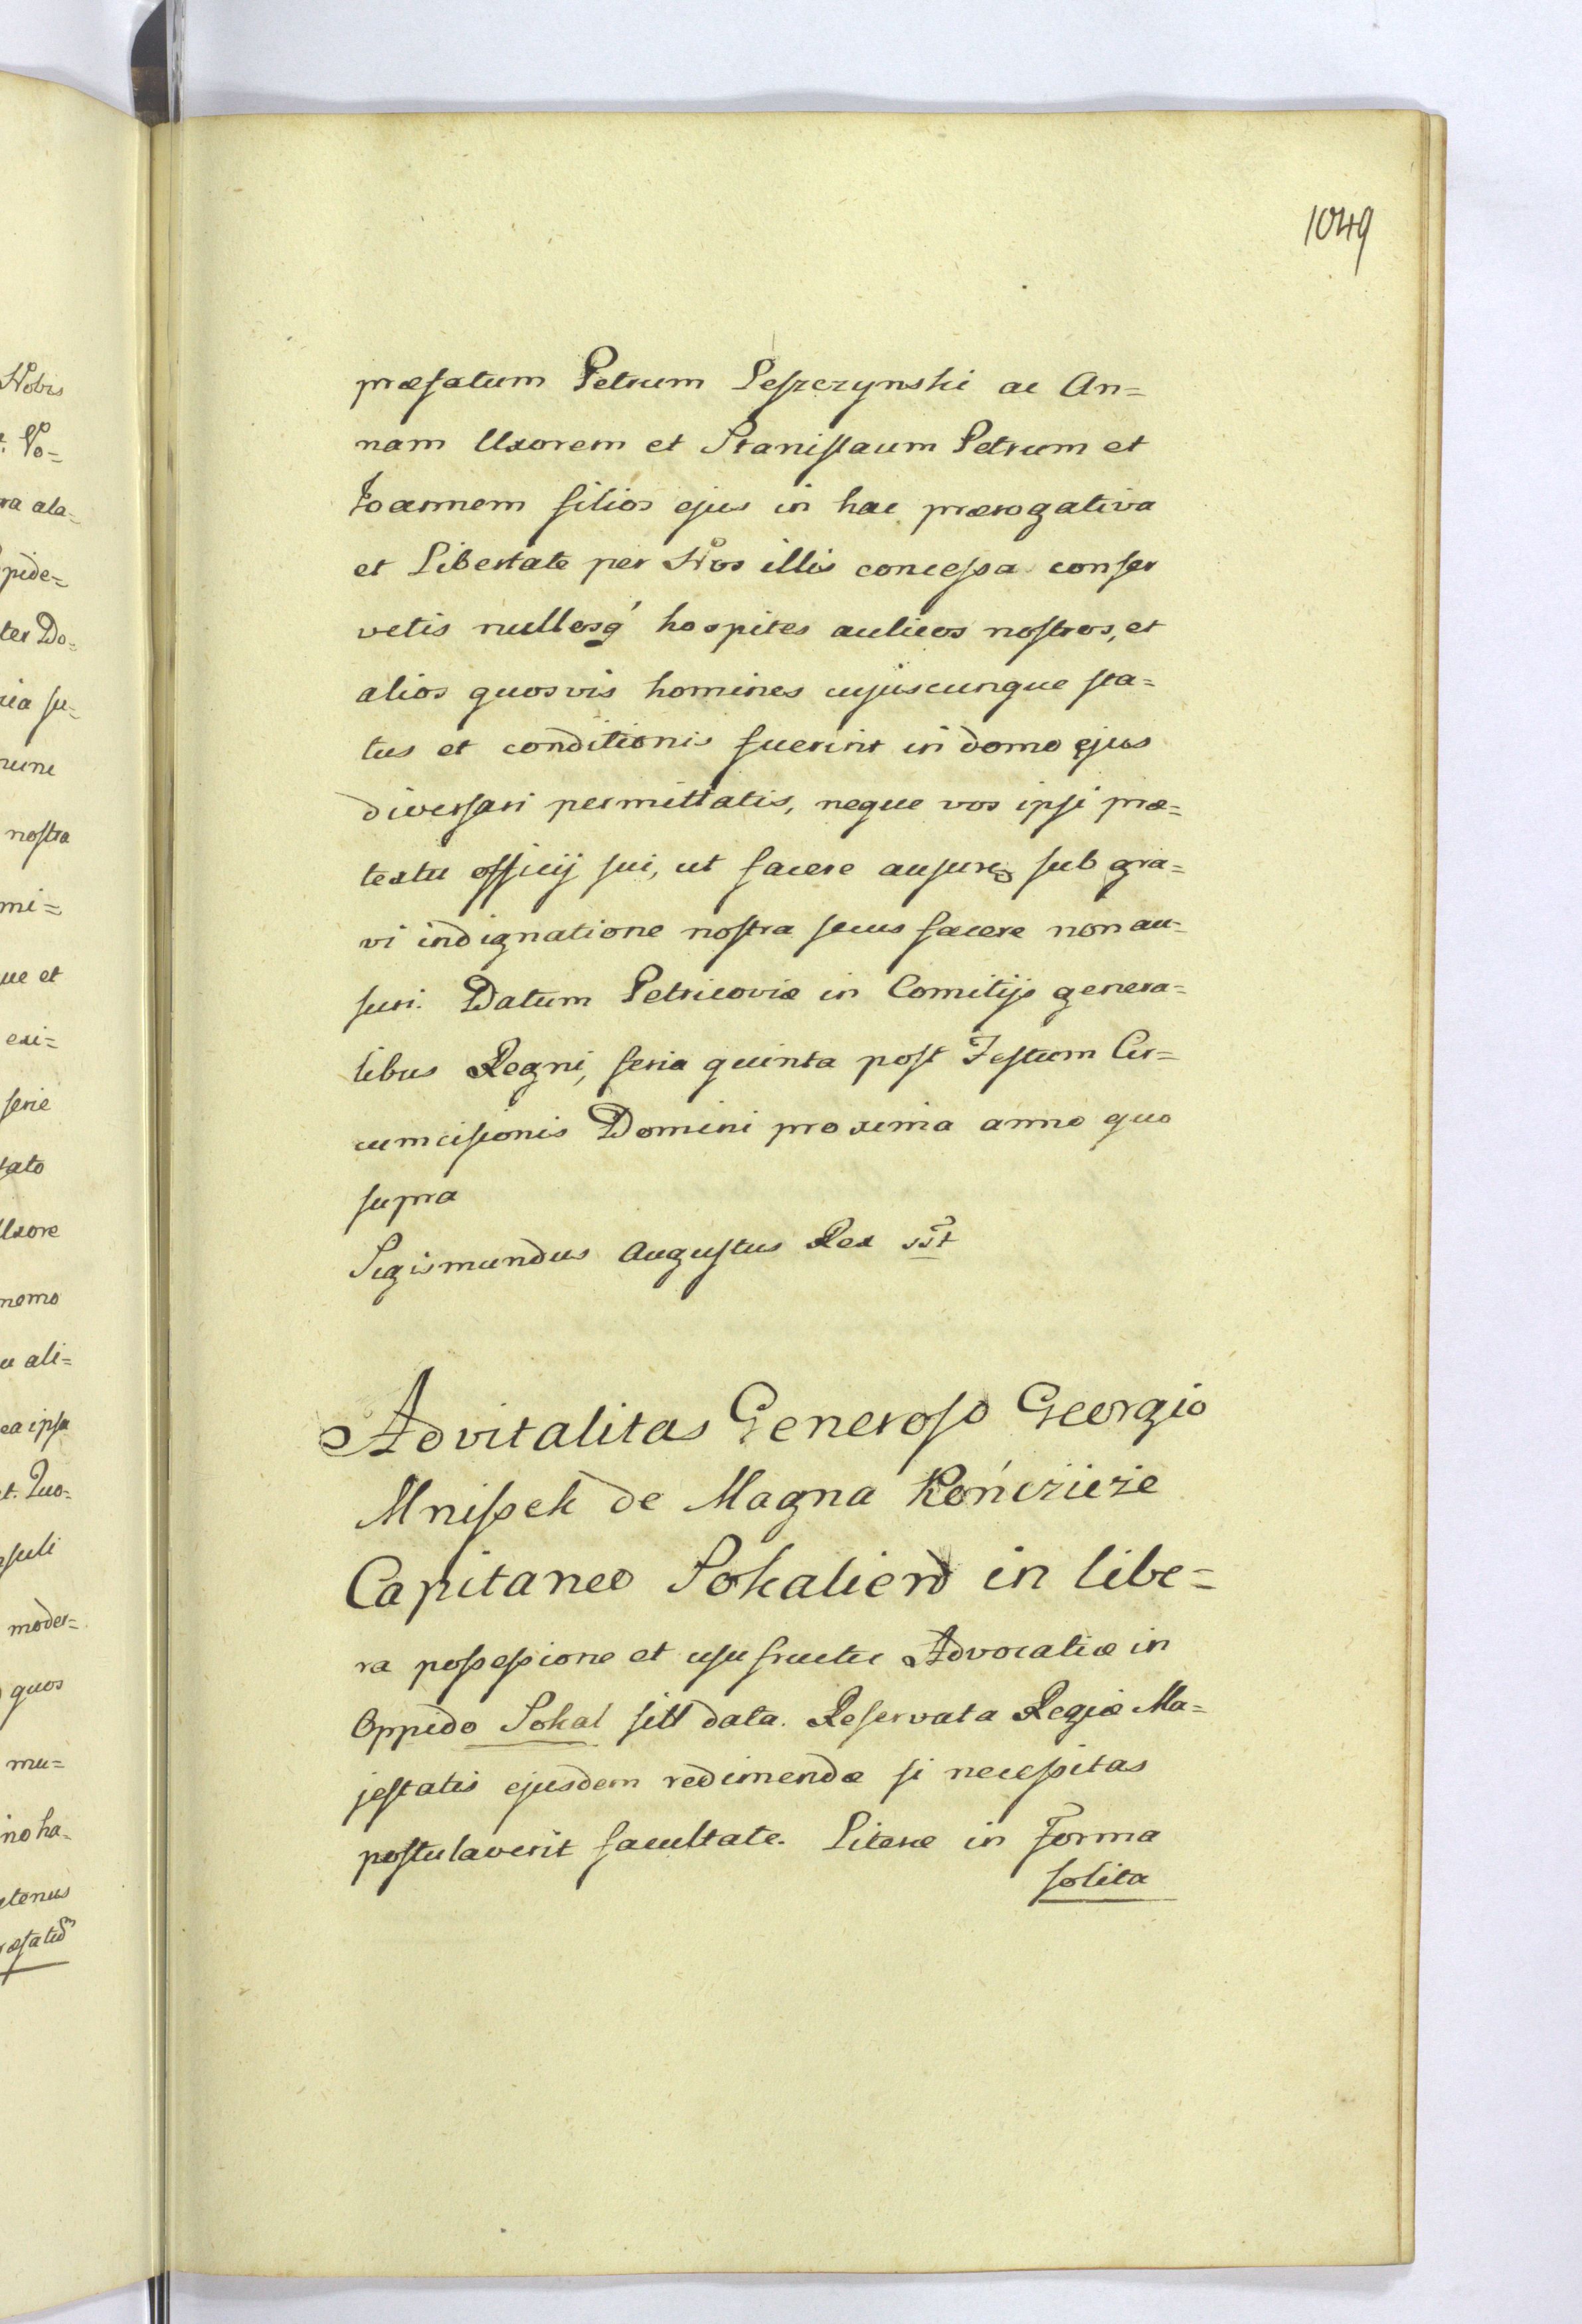 1049
præfatum Petrum Leszczynski ac An=
nam Uxorem et Stanislaum Petrum et
Joannem filios ejus in hac prærogativa
et Libertate per Nos illis concessa conser
vetis nullosq́ hospites aulicos nostros, et
alios quosvis homines cujuscunque sta=
tus et conditionis fuerint in domo ejus
diversari permittatis, neque vos ipsi præ=
textu officij sui, ut facere sub gra=
vi indignatione nostra secus facere non au=
suri. Datum Petricoviæ in Comitijs genera=
libus Regni, feria quinta post Festum Cir=
cumcisionis Domini proxima anno quo
supra
Sigismundus Augustus Rex sst
Advitalitas Generoso Georgio
Mnissek de Magna Kończicze
Capitaneo Sokalien in libe=
ra possessione et usufructu Advocatiæ in
Oppido Sokal sitt data. Reservata Regiæ Ma=
jestatis ejusdem redimendæ si necessitas
postulaverit facultate. Literæ in Forma
solita
Nobis
pide=
ter Do=
nostra
mi=
ue et
exi=
serie
tato
Uxore
nemo
ali=
ea ipsa
t. Quo=
moder=
quos
mu=